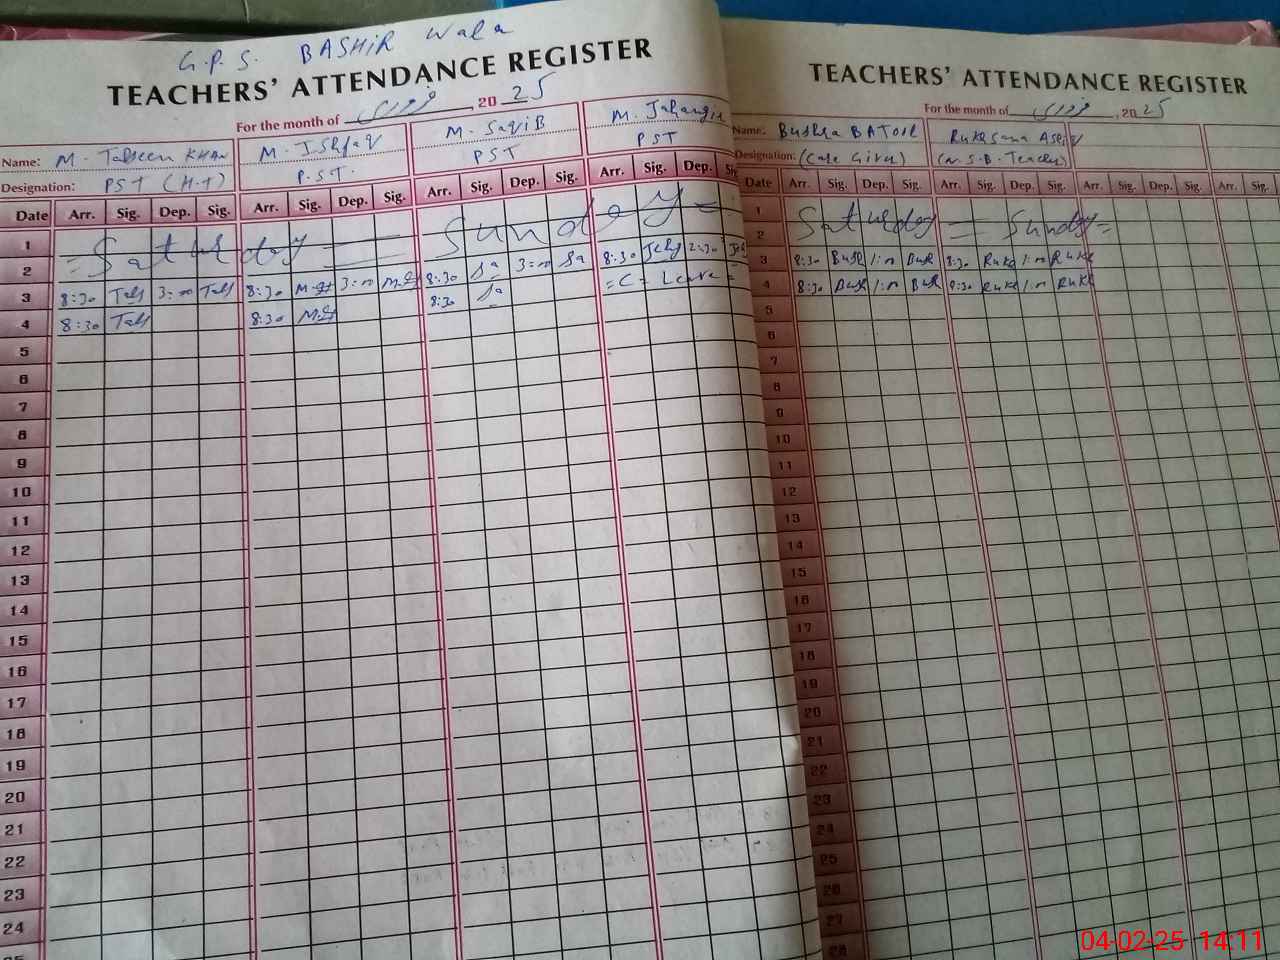 G.P.S. BASHIR Wala
TEACHERS' ATTENDANCE REGISTER
For the month of فروری, 2025
Name: M. Tahseen KHAN M. Ishfaq M. SaqiB M. Jahangir
Designation: PST (H.T) P.S.T. PST PST
Date Arr. Sig. Dep. Sig. Arr. Sig. Dep. Sig. Arr. Sig. Dep. Sig. Arr. Sig. Dep. Sig
1
2 = Saturday = Sunday =
3 8:30 3:00 8:30 3:00 8:30 Sa 3:00 Sa 8:30 2:30
4 8:30 8:30 8:30 Sa = C = Leave =
5
6
7
8
9
10
11
12
13
14
15
16
17
18
19
20
21
22
23
24
TEACHERS' ATTENDANCE REGISTER
For the month of فروری, 2025
Name: Bushra BATOOL Rukhsana
Designation: (Care Giver) (N.S.B. Teacher)
Date Arr. Sig. Dep. Sig. Arr. Sig. Dep. Sig. Arr. Sig. Dep. Sig. Arr. Sig.
1
2 Saturday = Sunday =
3 8:30 Bush 1:00 Bush 8:30 Rukh 1:00 Rukh
4 8:30 Bush 1:00 Bush 8:30 Rukh 1:00 Rukh
5
6
7
8
9
10
11
12
13
14
15
16
17
18
19
20
21
22
23
24
25
26
27
28
04-02-25 14:11